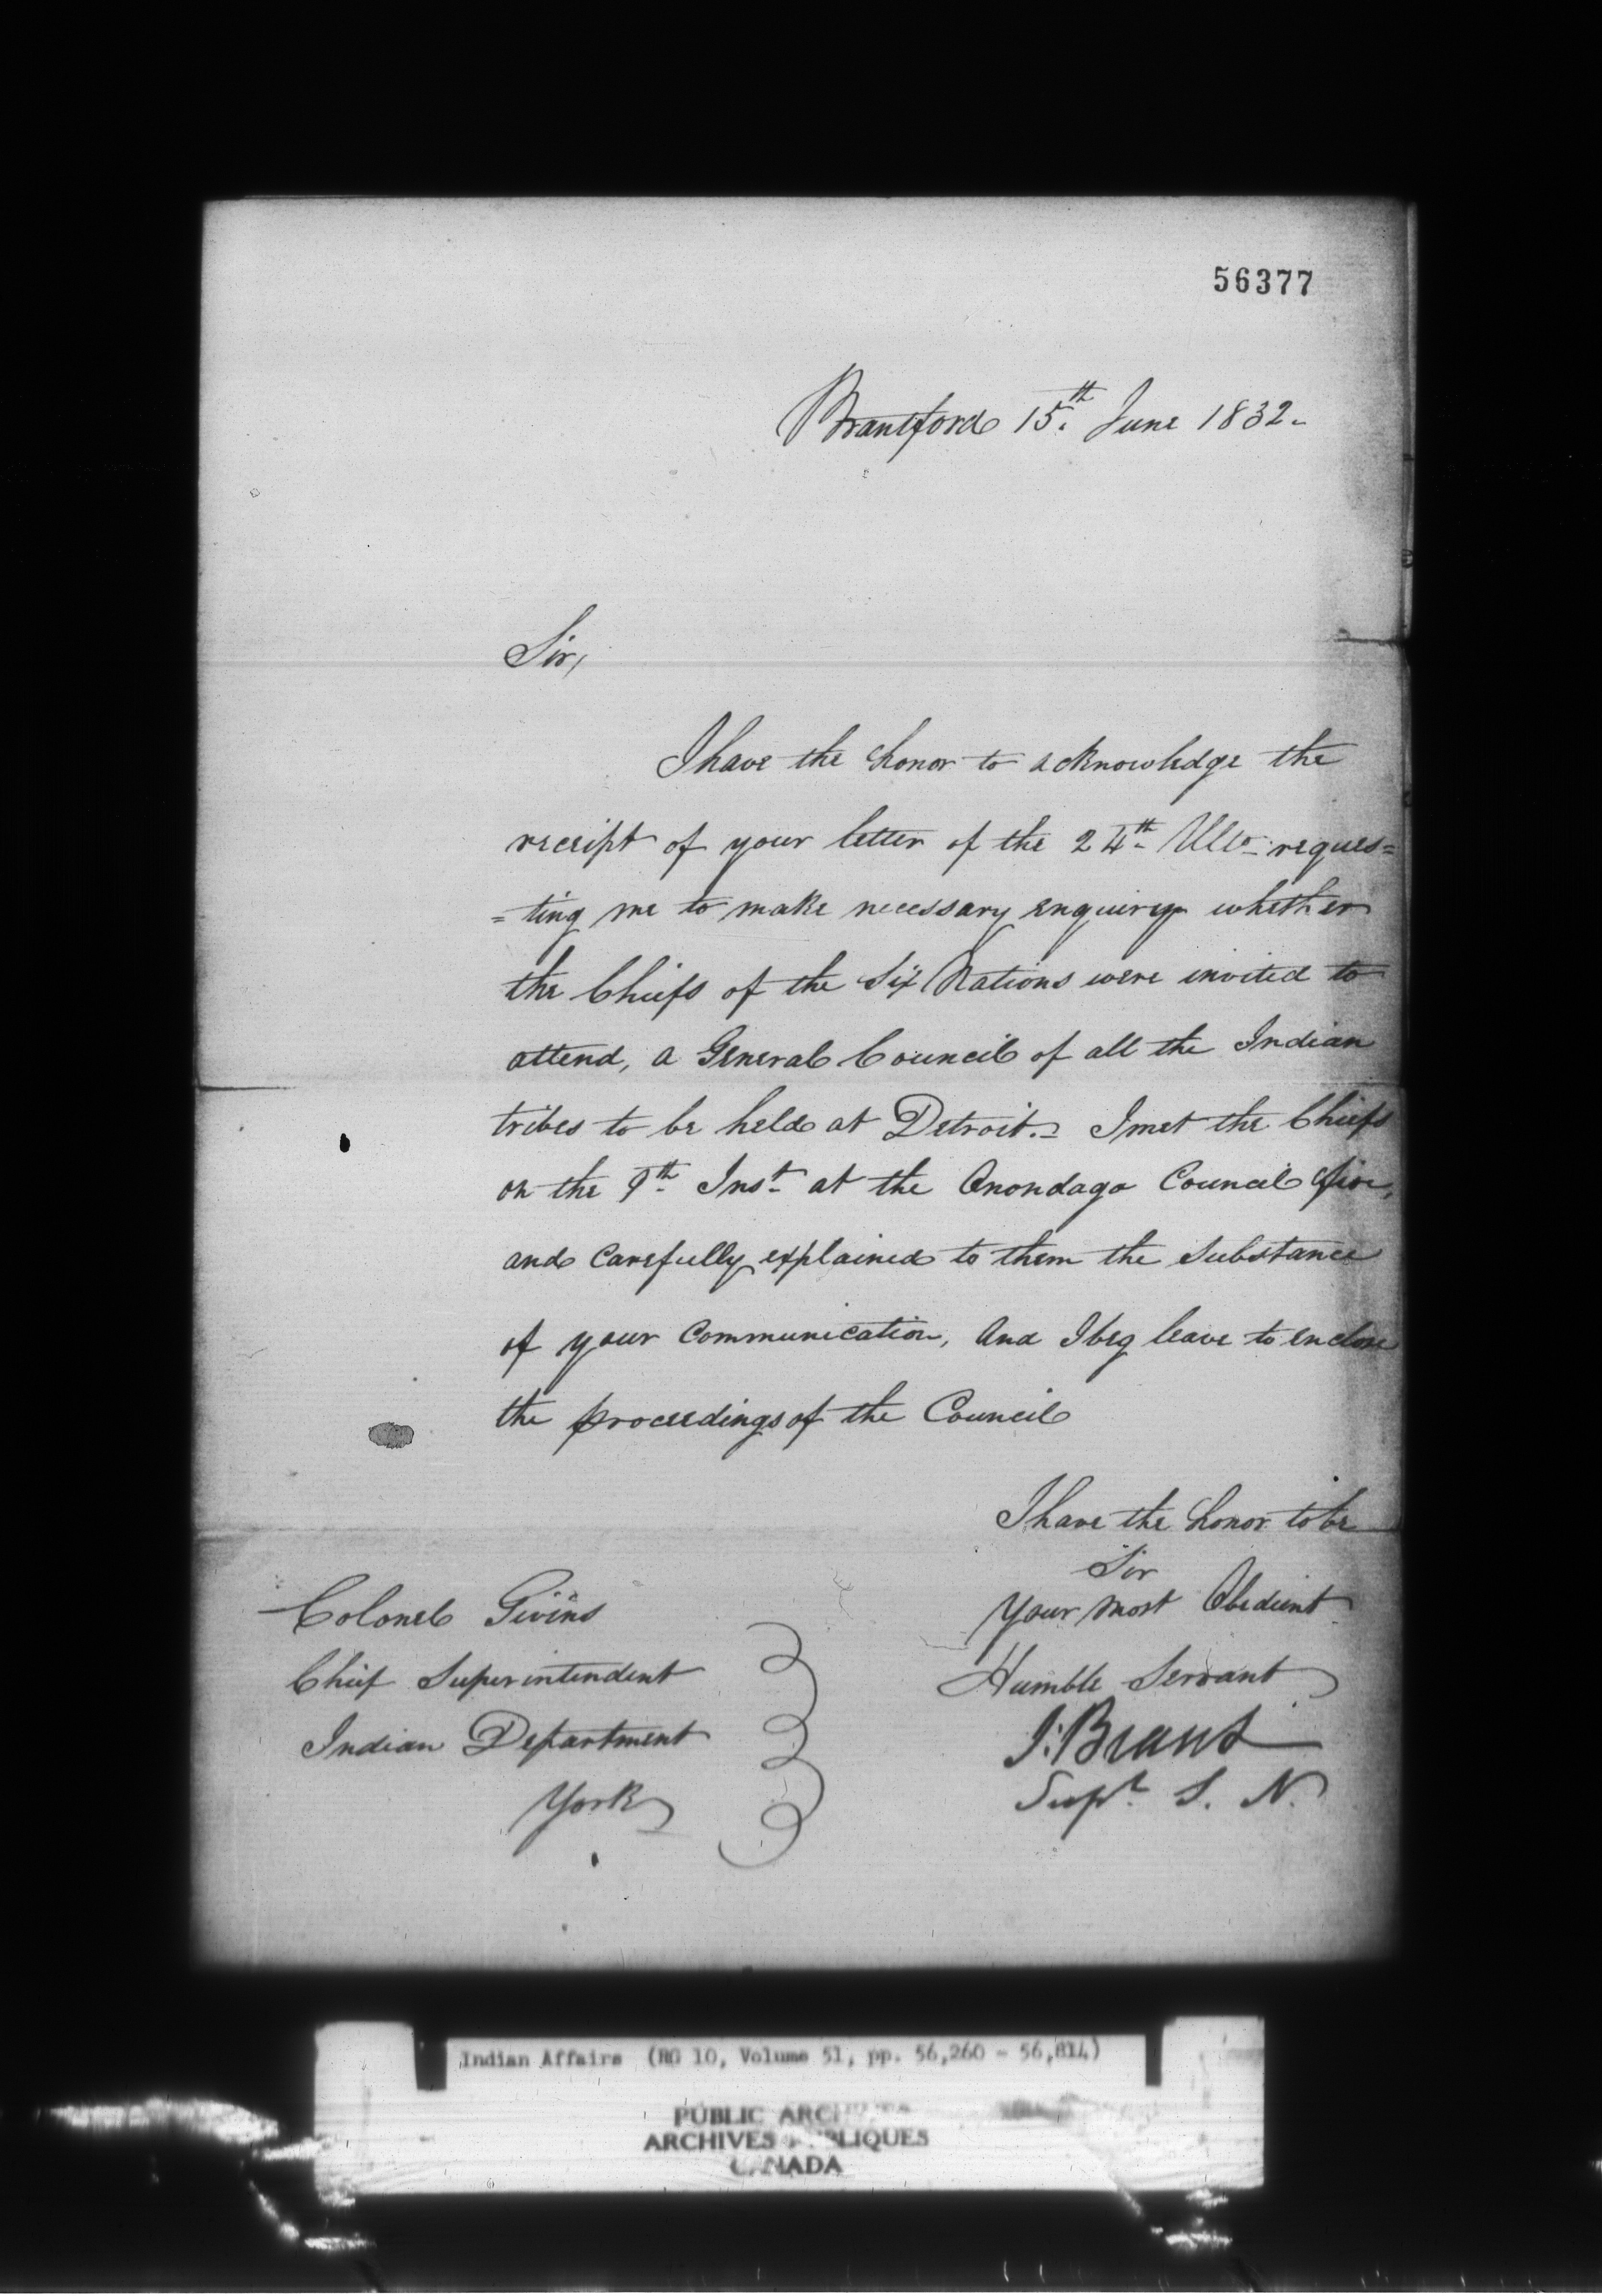 56377
Brantford 15th June 1832.
Sir,
I have the honor to acknowledge the
receipt of your letter of the 24th Ulto reques=
=ting me to make necessary enquiry whether
the Chiefs of the Six Nations were invited to
attend, a General Council of all the Indian
tribes to be held at Detroit. I met the Chiefs
on the 9th Inst at the Onondaga Council fire,
and carefully explained to them the Substance
of your Communication, And I beg leave to enclose
the proceedings of the Council
I have the honor to be
Sir
Your most Obedient
Humble Servant
J. Brant
Supt. S. N.
Colonel Givins
Chief Superintendent
Indian Department
York
Indian Affairs (RG 10, Volume 51, pp. 56,260 - 56,814)
PUBLIC ARCHIVES
ARCHIVES PUBLIQUES
CANADA